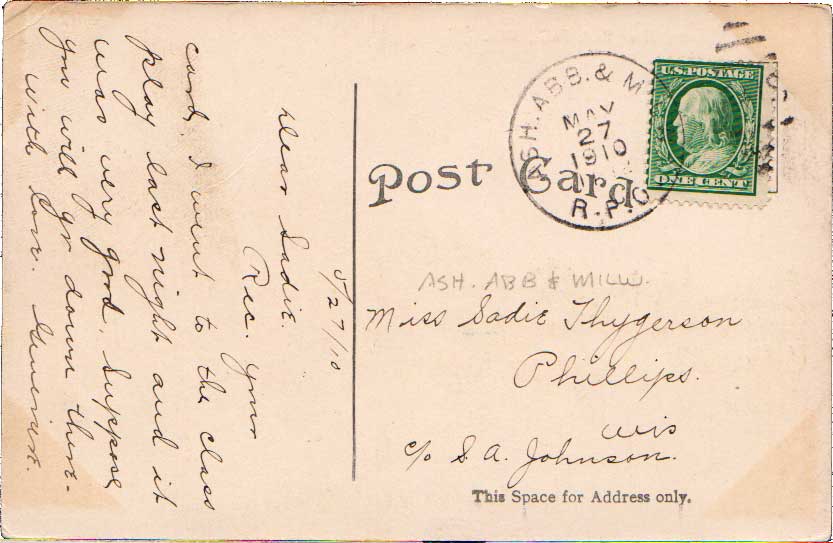 5/27/10
Dear Sadie.
Rec. your
card, I went to the class
play last night and it
was very good. Suppose
you will go down there.
with love. Genevieve.
Post Card
ASH. ABB. & M
MAY
27
1910
R.P.O.
U.S. POSTAGE
ONE CENT
ASH. ABB & MILW.
Miss Sadie Thygerson
Phillips.
Wis
c/o S. A. Johnson.
This Space for Address only.